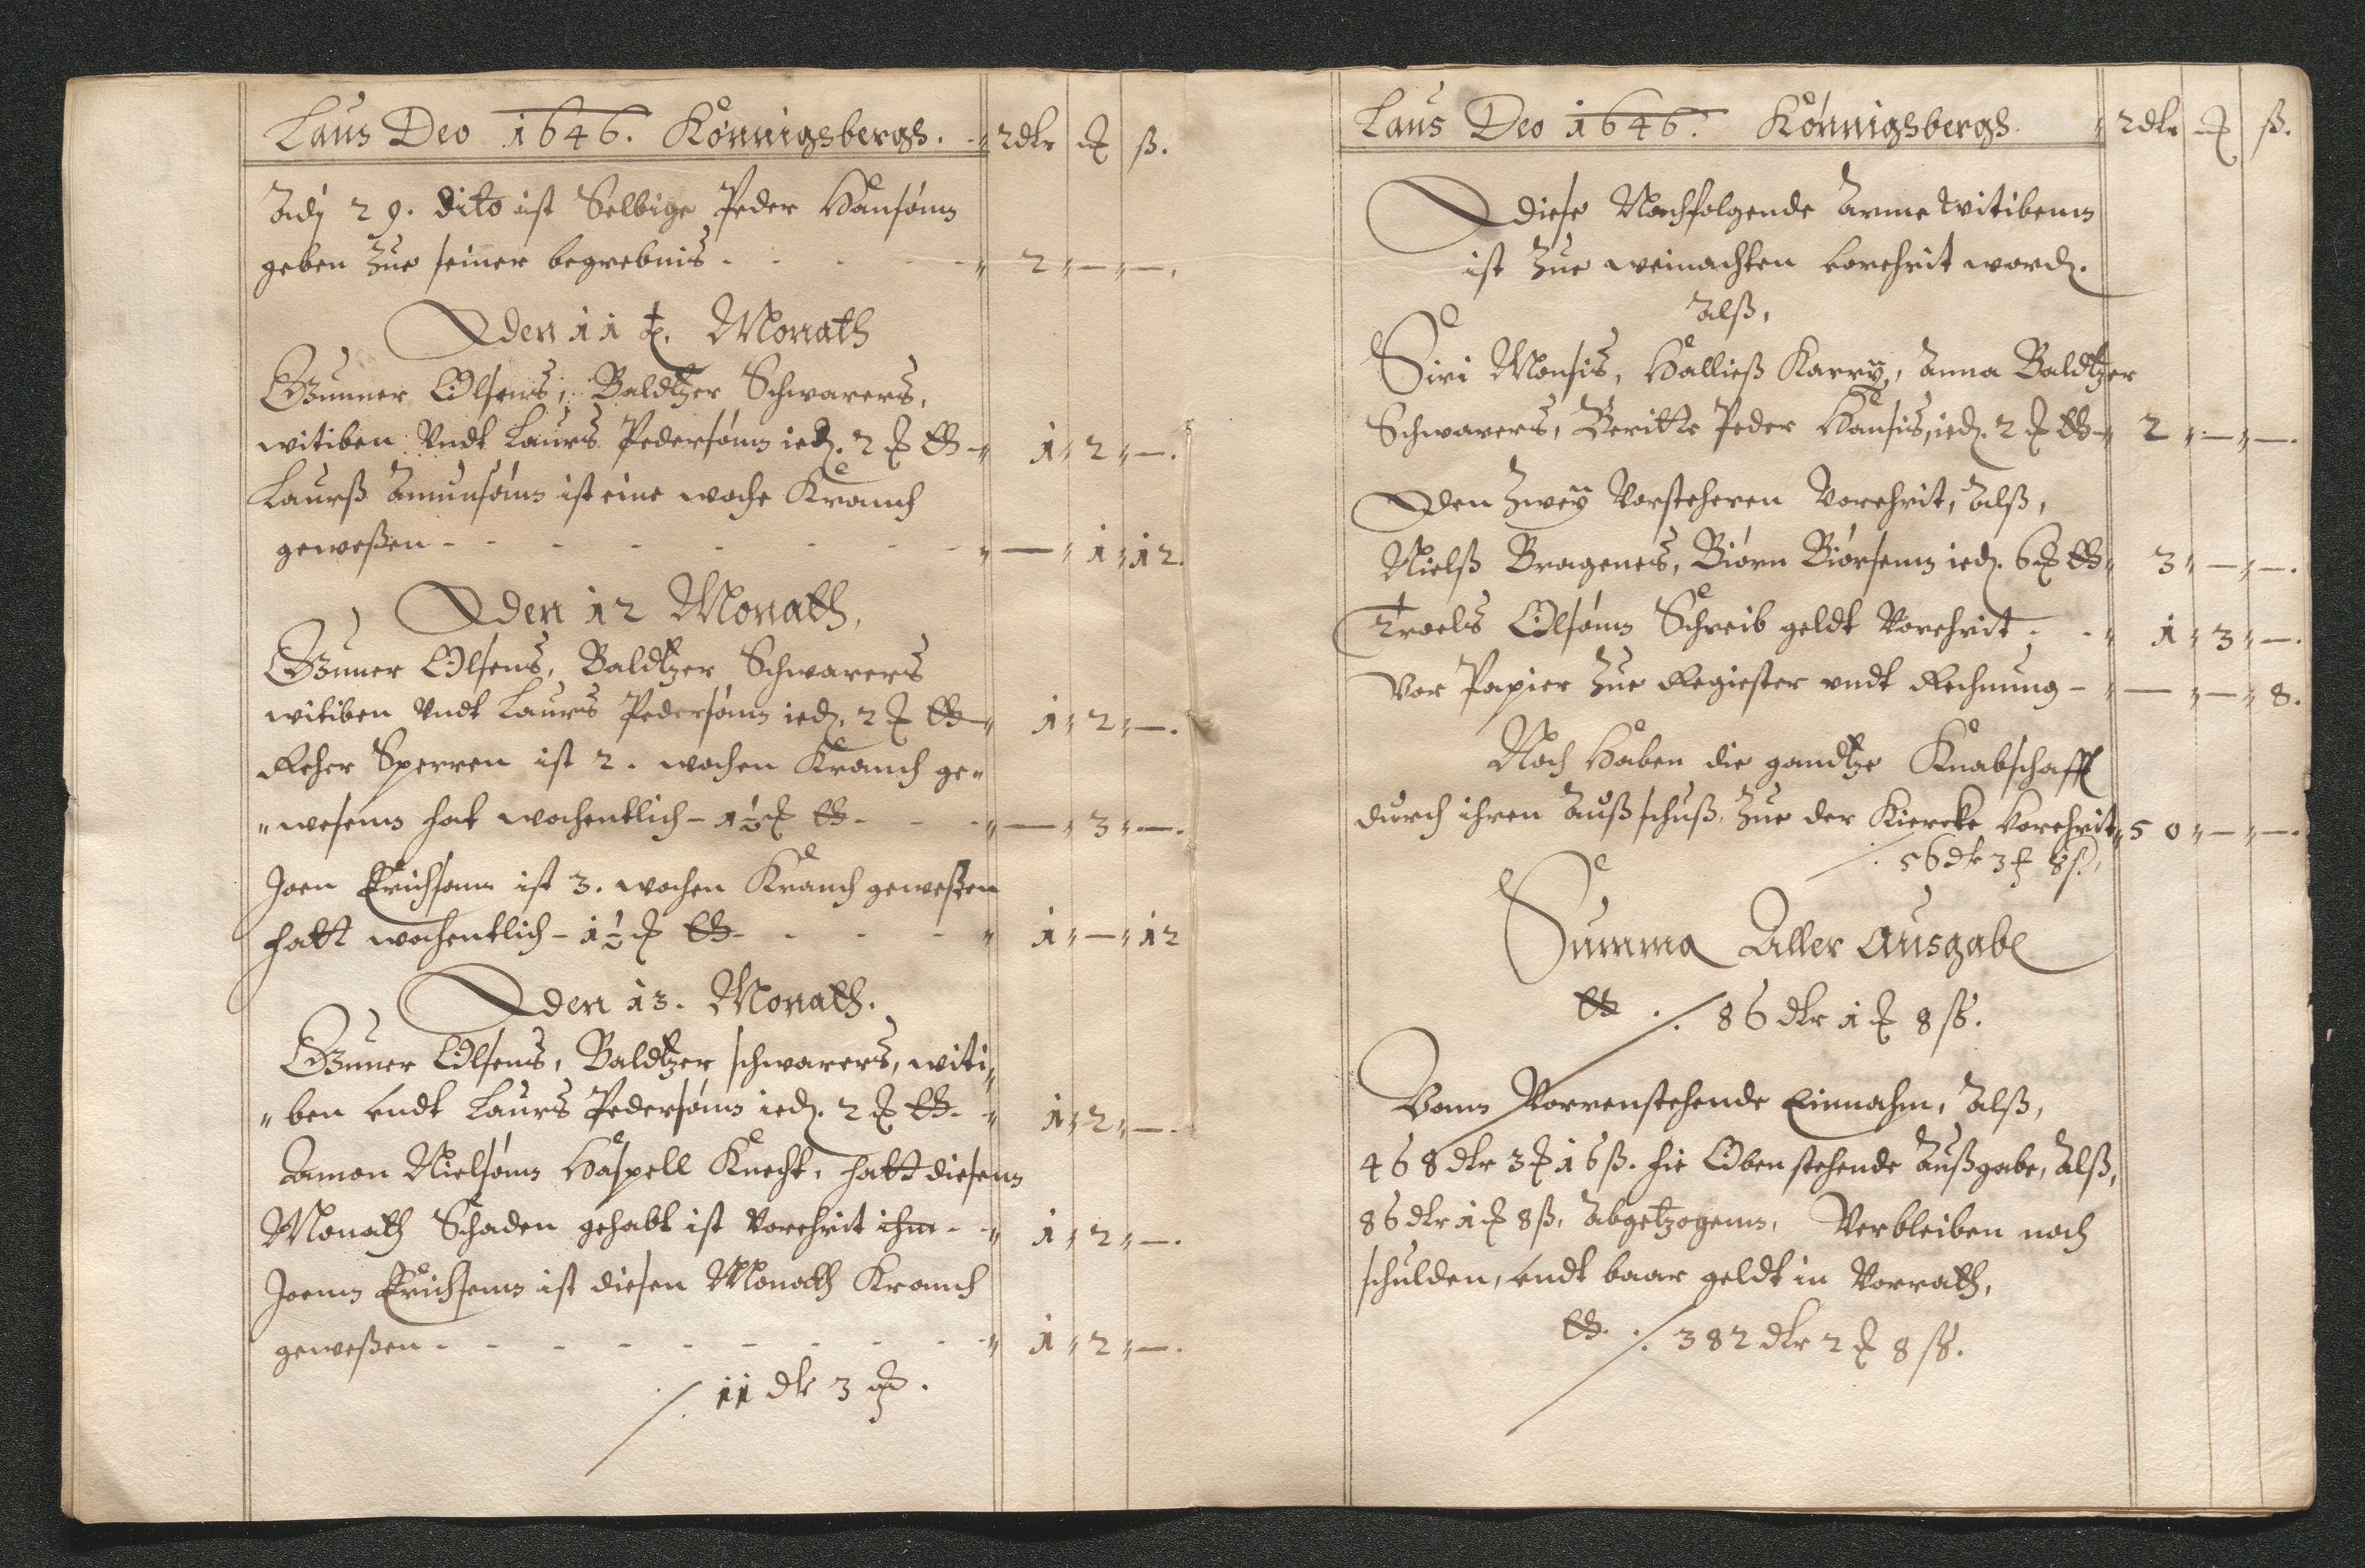 Laus Deo 1646. Kónnigsbergh. rdlr ß.
Adj 29. dito ist Selbige Peder Hansónn
geben Zue seiner begrebnis - - - - 2 " — " —.
Den 11 t. Monath
Gunner Olsens, Baldtzer Schwarers,
witiben Vndt Laurs Pedersónn ied. 2 1 " 2 " —.
Laurß Amunsónn ist eine woche Kranch
geweßen - - - - - - - — " 1 " 12.
Den 12 Monath,
Gunner Olsens, Baldtzer Schwarers
witiben Vndt Laurs Pedersónn ied. 2 1 " 2 " —.
Sperren ist 2. wochen Kranch ge"
"wesenn hat wochentlich - 1½ - - - — " 3 " —.
Joen Erichsonn ist 3. wochen Kranch geweßen
hatt wochentlich - 1½ - - - - 1 " — " 12
Den 13. Monath.
Gunner Olsens, Baldtzer schwarers, witi"
"ben vndt Laurs Pedersónn ied. 2 1 " 2 " —.
Amon Nielsónn Haspell Knecht, hatt diesenn
Monath Schaden gehabt ist Vorehrit ihm - 1 " 2 " —.
Joenn Erichsenn ist diesen Monath Kranch
geweßen - - - - - - - - 1 " 2 " —.
⁒ 11 dlr 3
Laus Deo 1646. Kónnigsbergh. rdlr ß.
Diese Nachfolgende Arme Witibenn
ist Zue weinachten vorehrit word.
Alß,
Siri Monsis, Halließ Karry, Anna Baldtzer
Schwarers, Beritte Peder Hansis, ied. 2 2 " — " —.
Den Zwey Vorsteheren Vorehrit, Alß,
Nielß Bragenes, Biórn Biórsenn ied. 6 3 " — " —.
Troels Olsónn Schreib geldt Vorehrit - - 1 " 3 " —.
Vor Papier Zue Register vndt Rechnung - — " — " 8.
Noch Haben die gandtze Knabschafft
durch ihren Außschuß, Zue der Kiercke Vorehrit 50 " — " —.
⁒ 56 dlr 3 8 ß.
Summa Aller Ausgabe
⁒ 86 dlr 1 8 ß.
Vonn Vorrenstehende Einnahm, Alß,
468 dlr 3 16 ß. hie Oben stehende Außgabe, Alß,
86 dlr 1 8 ß, Abgetzogenn, Verbleiben noch
schulden, vndt baar geldt in Vorrath,
⁒ 382 dlr 2 8 ß.